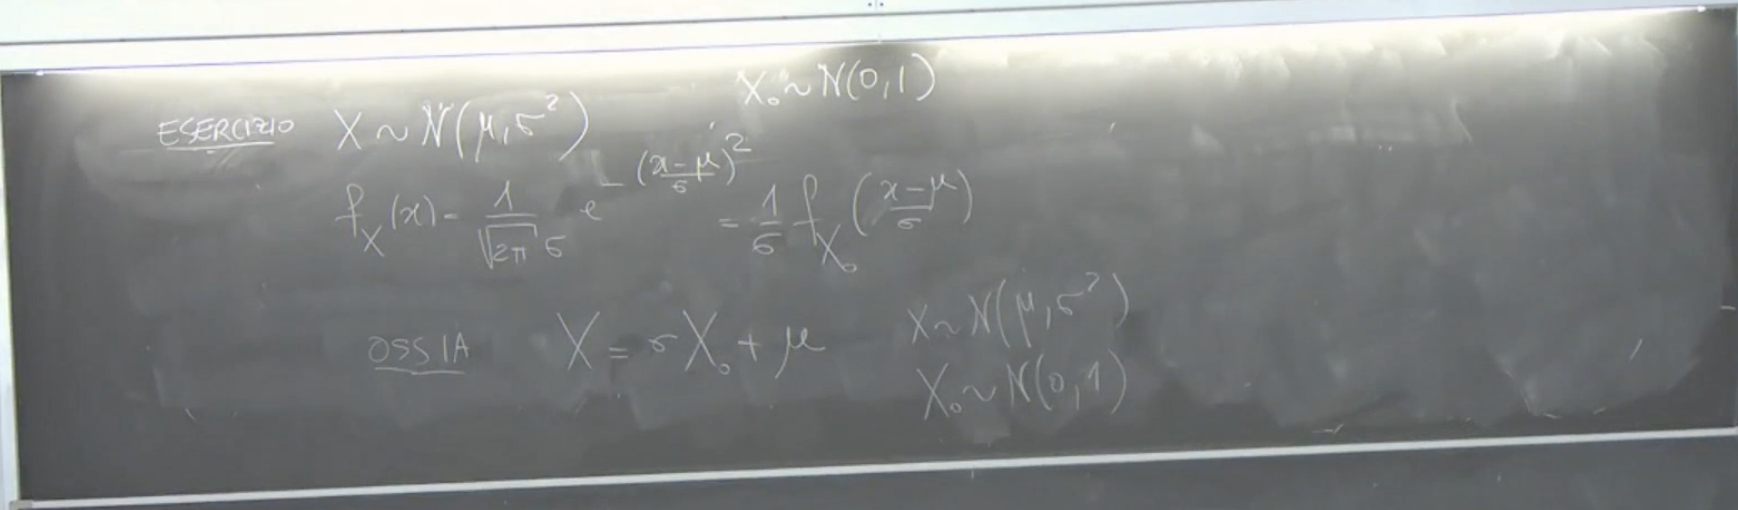 X₀ ~ N(0,1)
ESERCIZIO X ~ N(μ,σ²)
f_X(x) = 1/(√(2π) σ) e^{-((x-μ)/σ)²} = 1/σ f_{X₀}((x-μ)/σ)
OSSIA X = σX₀ + μ X ~ N(μ,σ²)
X₀ ~ N(0,1)